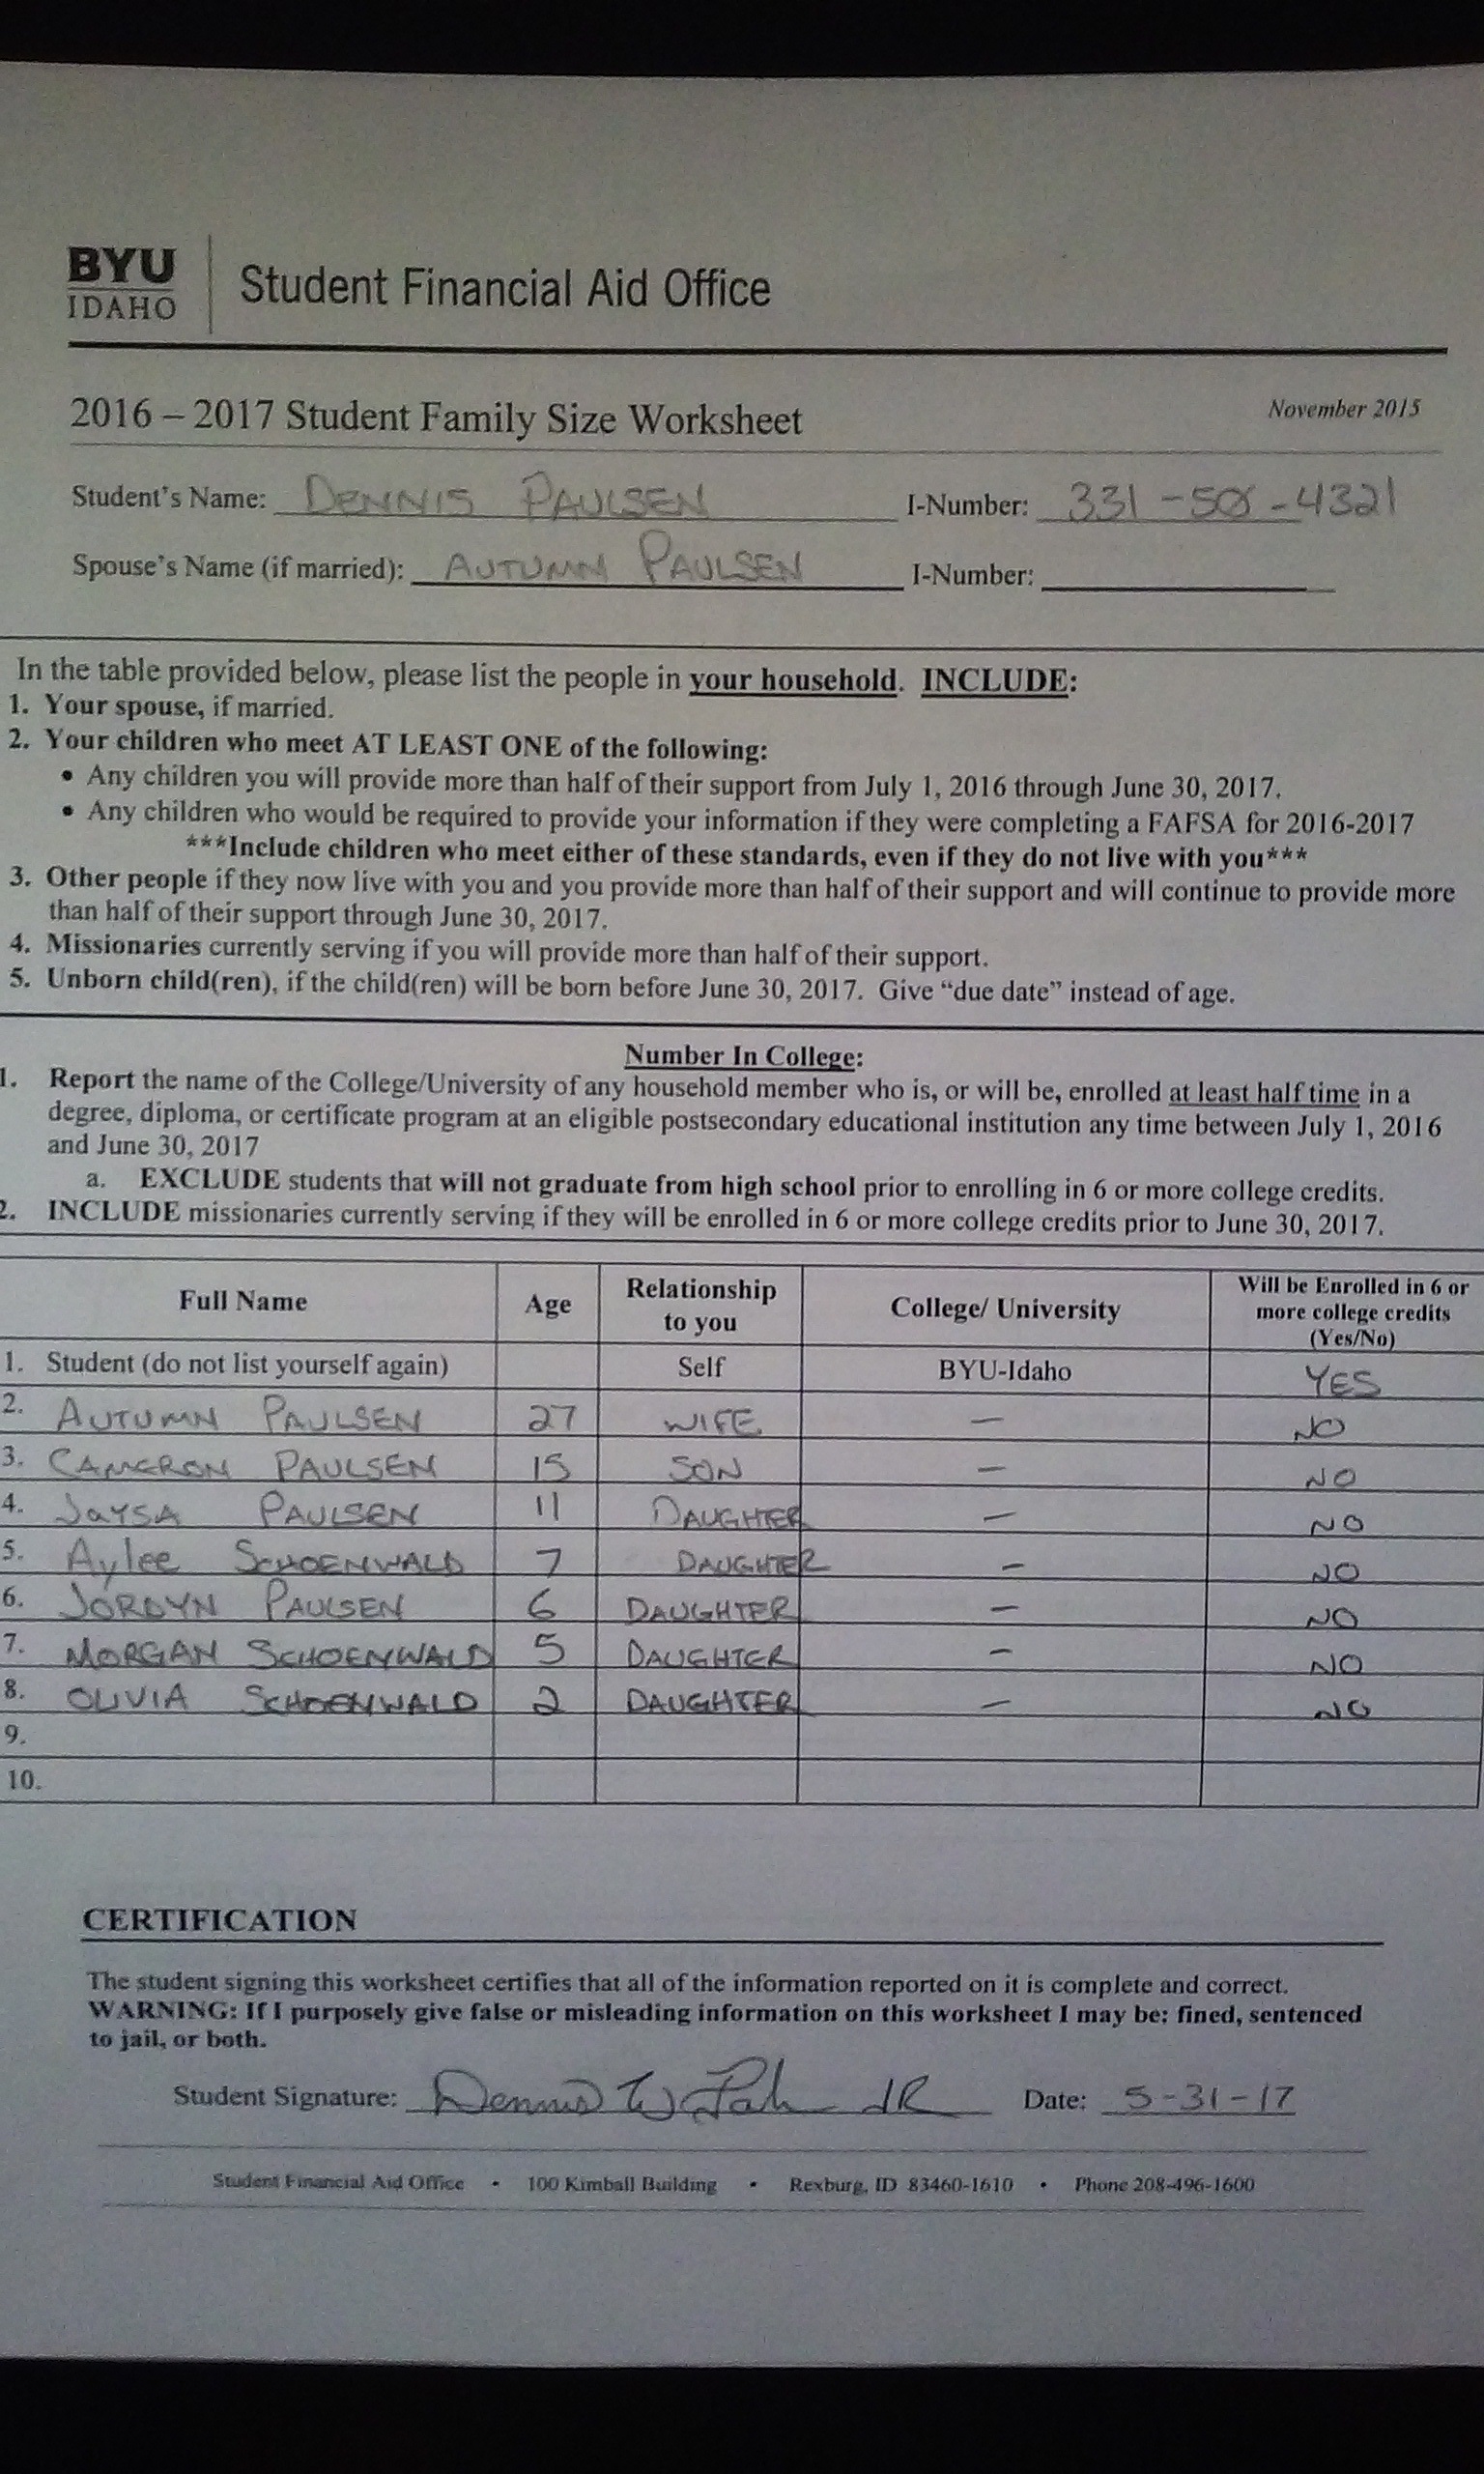 BYU
IDAHO
Student Financial Aid Office
2016 – 2017 Student Family Size Worksheet November 2015
Student's Name: DENNIS PAULSEN I-Number: 331-50-4321
Spouse's Name (if married): AUTUMN PAULSEN I-Number:
In the table provided below, please list the people in your household. INCLUDE:
1. Your spouse, if married.
2. Your children who meet AT LEAST ONE of the following:
• Any children you will provide more than half of their support from July 1, 2016 through June 30, 2017.
• Any children who would be required to provide your information if they were completing a FAFSA for 2016-2017
***Include children who meet either of these standards, even if they do not live with you***
3. Other people if they now live with you and you provide more than half of their support and will continue to provide more
than half of their support through June 30, 2017.
4. Missionaries currently serving if you will provide more than half of their support.
5. Unborn child(ren), if the child(ren) will be born before June 30, 2017. Give “due date” instead of age.
Number In College:
1. Report the name of the College/University of any household member who is, or will be, enrolled at least half time in a
degree, diploma, or certificate program at an eligible postsecondary educational institution any time between July 1, 2016
and June 30, 2017
a. EXCLUDE students that will not graduate from high school prior to enrolling in 6 or more college credits.
2. INCLUDE missionaries currently serving if they will be enrolled in 6 or more college credits prior to June 30, 2017.
Full Name Age Relationship to you College/ University Will be Enrolled in 6 or more college credits (Yes/No)
1. Student (do not list yourself again) Self BYU-Idaho YES
2. AUTUMN PAULSEN 27 WIFE — NO
3. CAMERON PAULSEN 15 SON — NO
4. JaYSA PAULSEN 11 DAUGHTER — NO
5. Aylee SCHOENWALD 7 DAUGHTER — NO
6. JORDYN PAULSEN 6 DAUGHTER — NO
7. MORGAN SCHOENWALD 5 DAUGHTER — NO
8. OLIVIA SCHOENWALD 2 DAUGHTER — NO
9.
10.
CERTIFICATION
The student signing this worksheet certifies that all of the information reported on it is complete and correct.
WARNING: If I purposely give false or misleading information on this worksheet I may be: fined, sentenced
to jail, or both.
Student Signature: Dennis W JR Date: 5-31-17
Student Financial Aid Office • 100 Kimball Building • Rexburg, ID 83460-1610 • Phone 208-496-1600